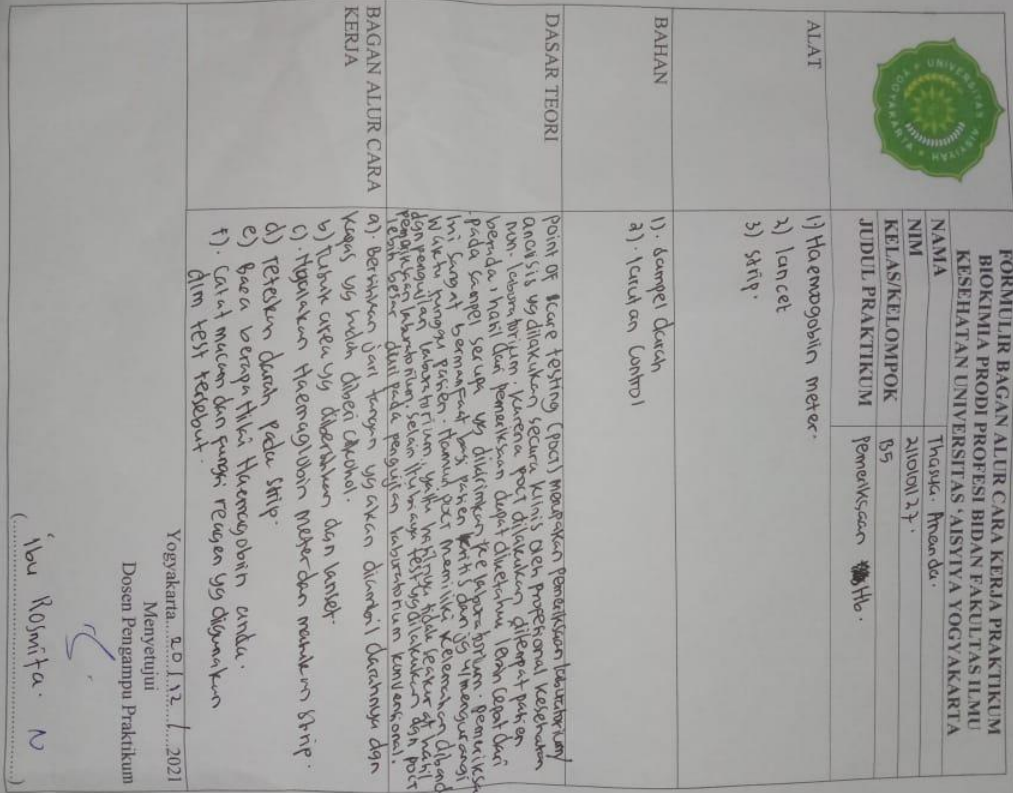 UNIVERSITAS AISYIYAH YOGYAKARTA
FORMULIR BAGAN ALUR CARA KERJA PRAKTIKUM
BIOKIMIA PRODI PROFESI BIDAN FAKULTAS ILMU
KESEHATAN UNIVERSITAS 'AISYIYA YOGYAKARTA
NAMA Thasya. Amanda.
NIM 2110101127.
KELAS/KELOMPOK B5
JUDUL PRAKTIKUM Pemeriksaan Hb.
ALAT
1) Haemogoblin meter.
2) lancet
3) strip.
BAHAN
1). Sampel darah
2). larutan Control
DASAR TEORI
Point of scare testing (Poct) merupakan Pemeriksaan laboratorium/
analisis yg dilakukan secara klinis oleh Profesional kesehatan
non-laboratorium. karena poct dilakukan ditempat pasien
berada, hasil dari pemeriksaan dapat diketahui lebih cepat dari
pada sampel serupa yg dikirimkan ke laboratorium. Pemeriksa
ini sangat bermanfaat bagi pasien kritis dan jg u/mengurangi
waktu tunggu pasien. Namun poct memiliki kelemahan diband
dgn pengujian laboratorium yaitu hasilnya tidak seakurat hasil
pemeriksaan laboratorium. selain itu biaya test yg dilakukan dgn poct
lebih besar dari pada pengujian laboratorium konvensional.
BAGAN ALUR CARA
KERJA
a). Bersihkan jari tangan yg akan diambil darahnya dgn
kapas yg sudah diberi alkohol.
b) Tusuk area yg dibersihkan dgn lanset.
c). Nyalakan Haemaglobin meter dan masukkan strip.
d) Teteskan darah pada strip.
e) Baca berapa Hiki Haemogobin anda.
f). Catat macam dan fungsi reagen yg digunakan
dlm test tersebut.
Yogyakarta 20/12/2021
Menyetujui
Dosen Pengampu Praktikum
(ibu Rosmita. N)